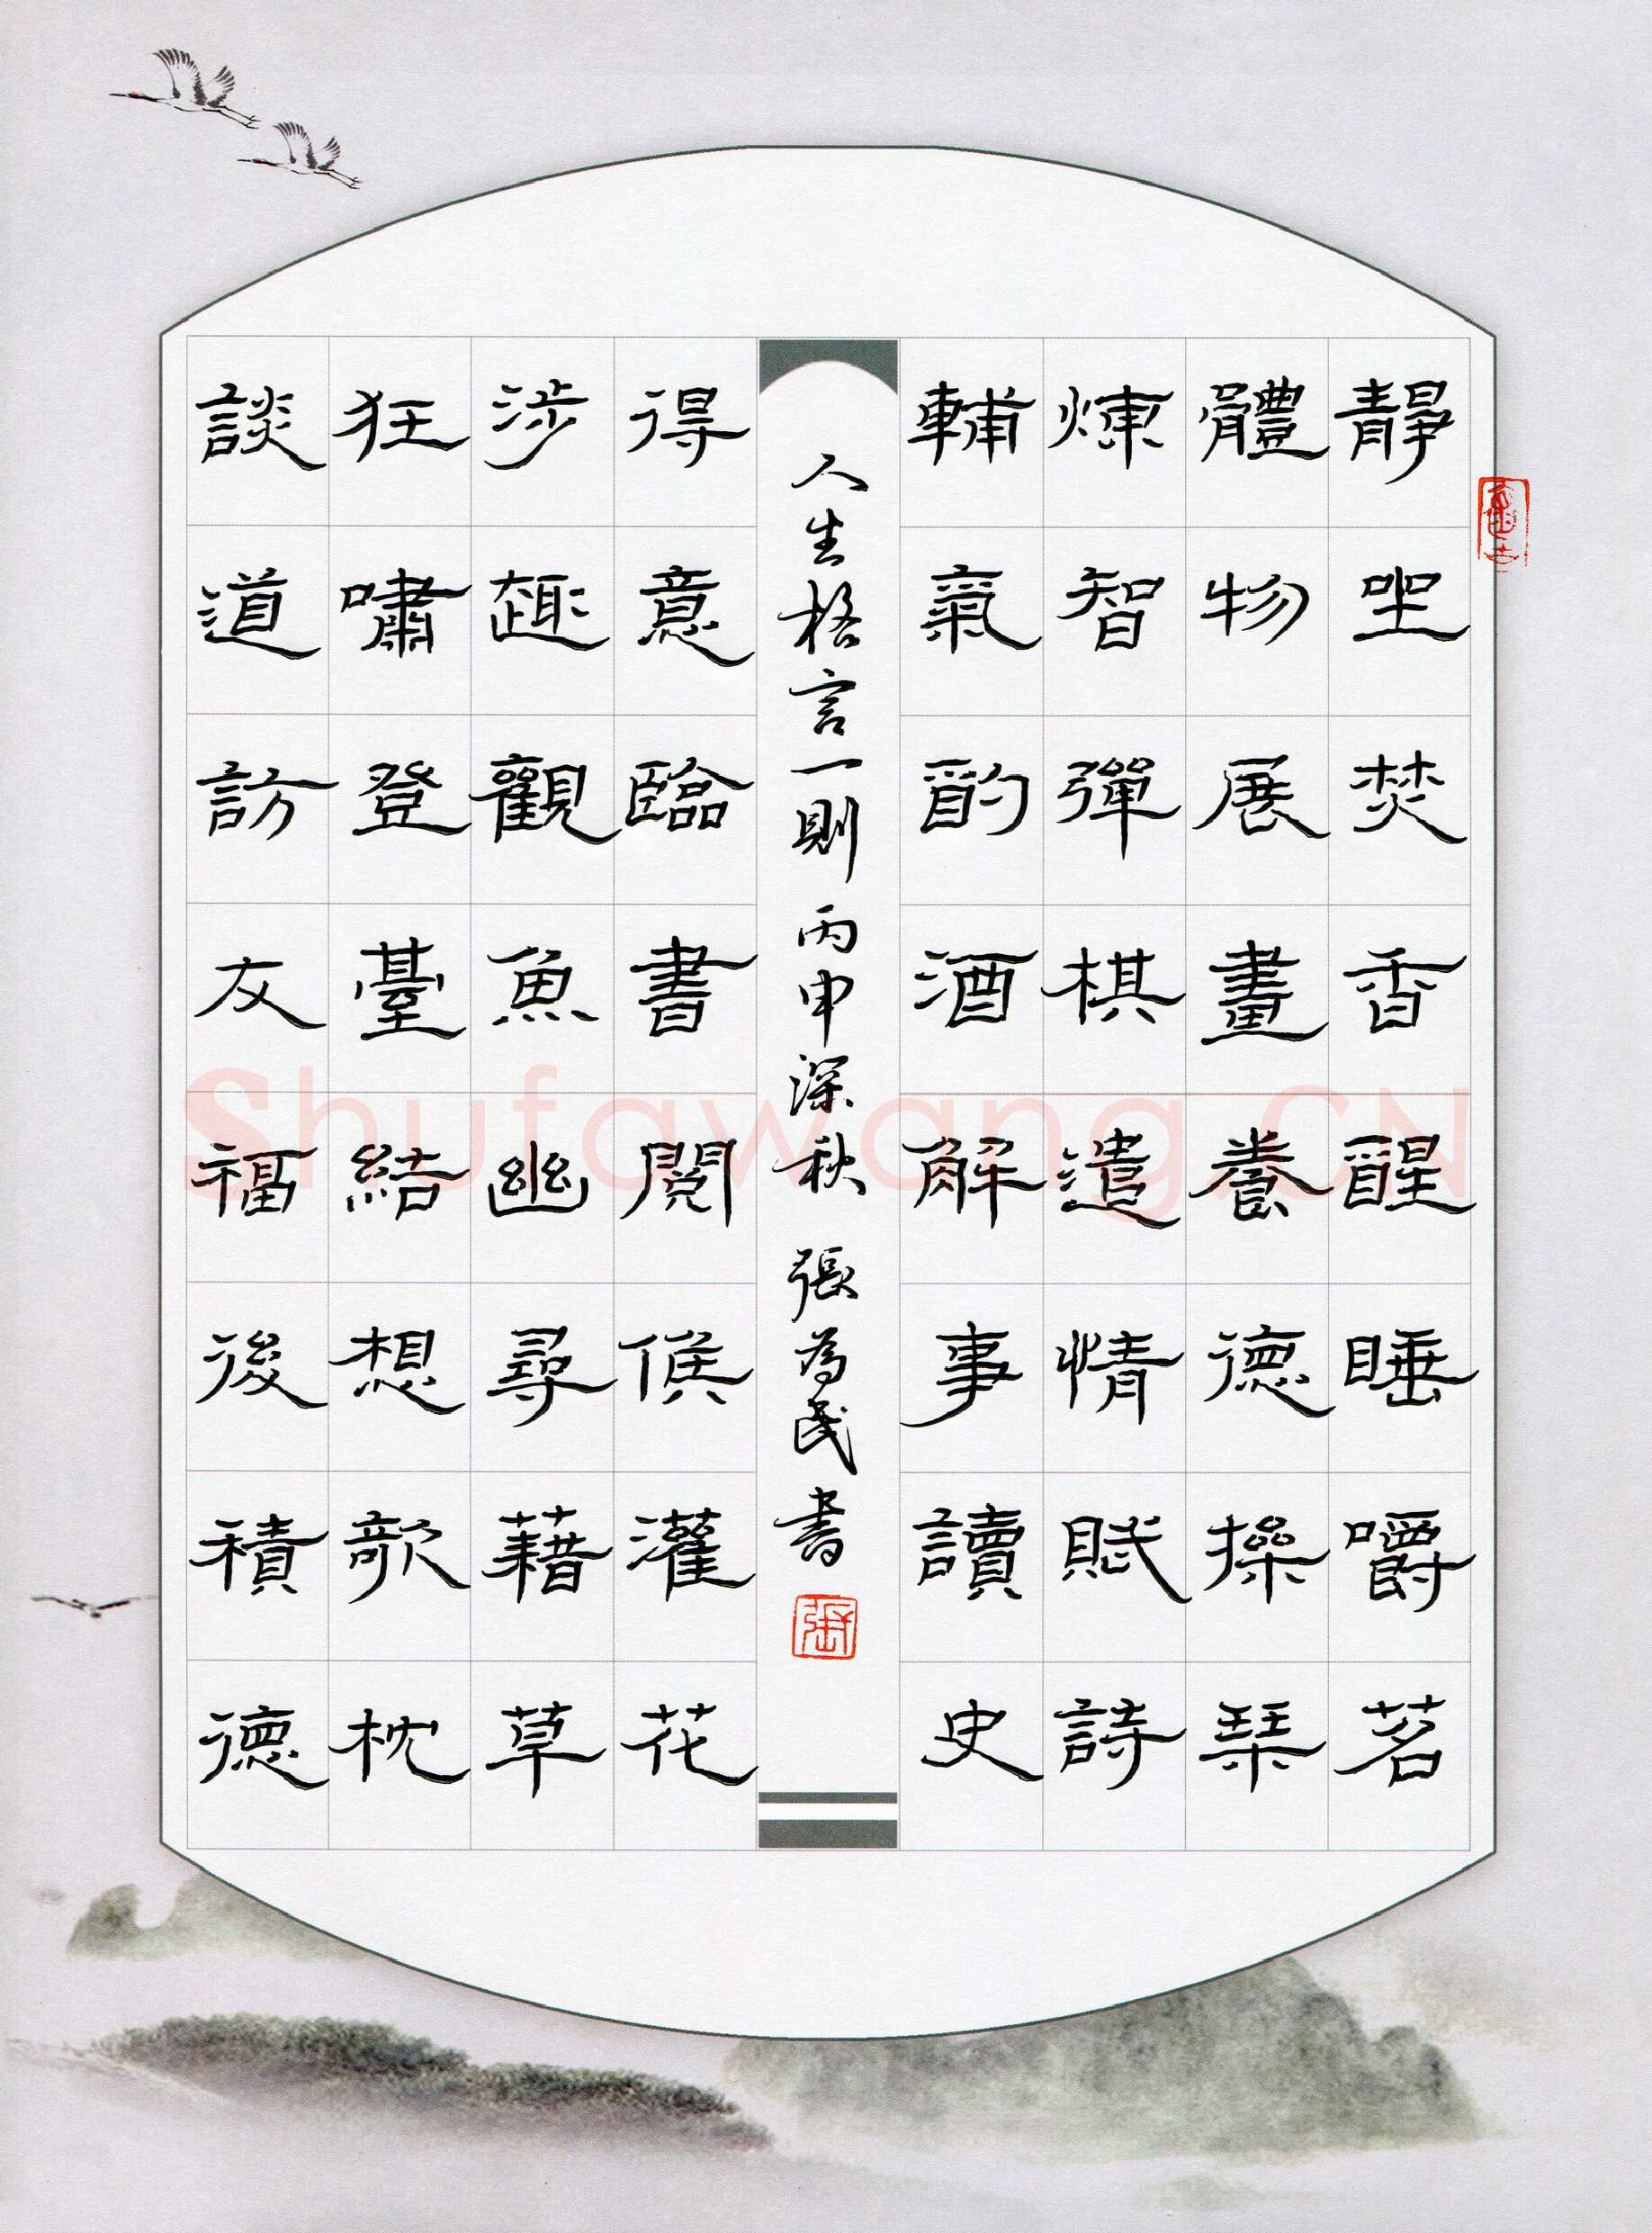 靜坐焚香醒睡嚼茗
體物展畫養德操琴
煉智彈棋遣情賦詩
輔氣酌酒解事讀史
人生格言一則 丙申深秋 張為民書
張
得意臨書閱候灌花
涉趣觀魚幽尋藉草
狂嘯登臺結想欹枕
談道訪友福後積德
Shufawang.CN